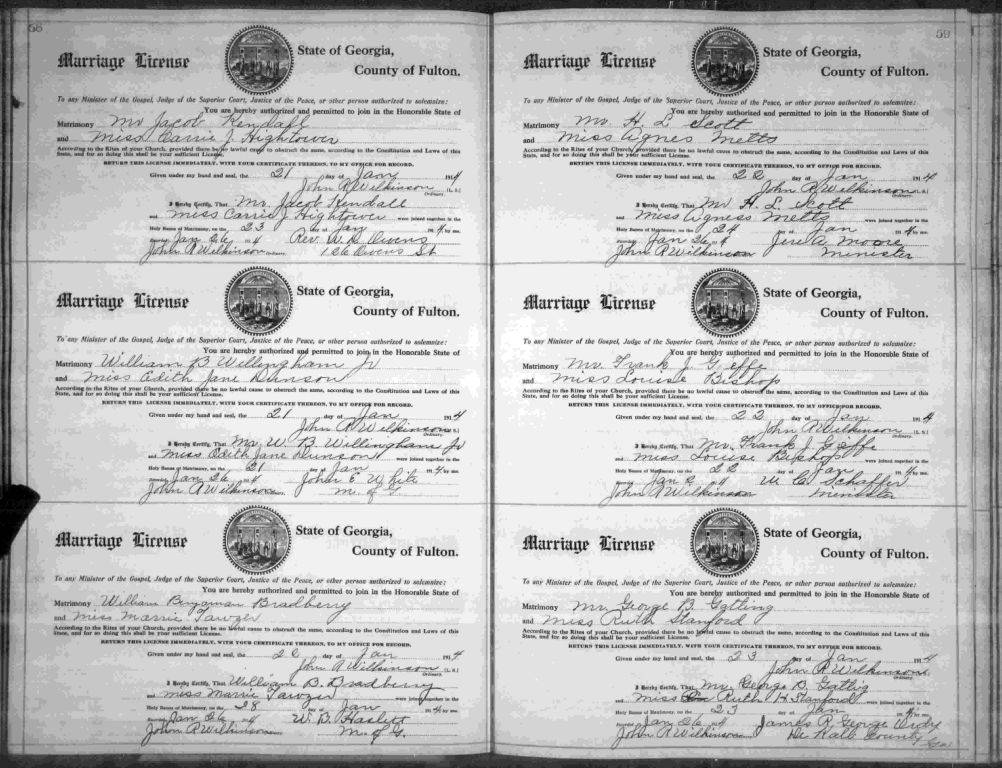 58
Marriage License
State of Georgia,
County of Fulton.
To any Minister of the Gospel, Judge of the Superior Court, Justice of the Peace, or other person authorized to solemnize:
You are hereby authorized and permitted to join in the Honorable State of
Matrimony Mr Jacob Kendall
and Miss Carrie J Hightower
According to the Rites of your Church, provided there be no lawful cause to obstruct the same, according to the Constitution and Laws of this
State, and for so doing this shall be your sufficient License.
RETURN THIS LICENSE IMMEDIATELY, WITH YOUR CERTIFICATE THEREON, TO MY OFFICE FOR RECORD.
Given under my hand and seal, the 21 day of Jan 1914
John R Wilkinson (L. S.)
Ordinary.
I Hereby Certify, That Mr. Jacob Kendall
and Miss Carrie J Hightower were joined together in the
Holy Banes of Matrimony, on the 23 day of Jan 1914 by me.
Recorded Jan 26 1914 Rev. W. D. Owens
John R Wilkinson Ordinary. 126 Owens St
Marriage License
State of Georgia,
County of Fulton.
To any Minister of the Gospel, Judge of the Superior Court, Justice of the Peace, or other person authorized to solemnize:
You are hereby authorized and permitted to join in the Honorable State of
Matrimony William B Willingham Jr
and Miss Edith Jane Dunson
According to the Rites of your Church, provided there be no lawful cause to obstruct the same, according to the Constitution and Laws of this
State, and for so doing this shall be your sufficient License.
RETURN THIS LICENSE IMMEDIATELY, WITH YOUR CERTIFICATE THEREON, TO MY OFFICE FOR RECORD.
Given under my hand and seal, the 21 day of Jan 1914
John R Wilkinson (L. S.)
Ordinary.
I Hereby Certify, That Mr. W. B. Willingham Jr
and Miss Edith Jane Dunson were joined together in the
Holy Banes of Matrimony, on the 21 day of Jan 1914 by me.
Recorded Jan 26 1914 John E White
John R Wilkinson Ordinary. M. of G.
Marriage License
State of Georgia,
County of Fulton.
To any Minister of the Gospel, Judge of the Superior Court, Justice of the Peace, or other person authorized to solemnize:
You are hereby authorized and permitted to join in the Honorable State of
Matrimony William Benjaman Bradberry
and Miss Marrie Tawzer
According to the Rites of your Church, provided there be no lawful cause to obstruct the same, according to the Constitution and Laws of this
State, and for so doing this shall be your sufficient License.
RETURN THIS LICENSE IMMEDIATELY, WITH YOUR CERTIFICATE THEREON, TO MY OFFICE FOR RECORD.
Given under my hand and seal, the 26 day of Jan 1914
John R Wilkinson (L. S.)
Ordinary.
I Hereby Certify, That William B. Bradberry
and Miss Marrie Tawzer were joined together in the
Holy Banes of Matrimony, on the 28 day of Jan 1914 by me.
Recorded Jan 26 1914 W. B. Haslett
John R Wilkinson M. of G.
59
Marriage License
State of Georgia,
County of Fulton.
To any Minister of the Gospel, Judge of the Superior Court, Justice of the Peace, or other person authorized to solemnize:
You are hereby authorized and permitted to join in the Honorable State of
Matrimony Mr. H. L Scott
and Miss Agnes Metts
According to the Rites of your Church, provided there be no lawful cause to obstruct the same, according to the Constitution and Laws of this
State, and for so doing this shall be your sufficient License.
RETURN THIS LICENSE IMMEDIATELY, WITH YOUR CERTIFICATE THEREON, TO MY OFFICE FOR RECORD.
Given under my hand and seal, the 22 day of Jan 1914
John R Wilkinson (L. S.)
Ordinary.
I Hereby Certify, That Mr H. L Scott
and Miss Agness Metts were joined together in the
Holy Banes of Matrimony, on the 24 day of Jan 1914 by me.
Recorded Jan 26 1914 Jere A. Moore
John R Wilkinson Minister
Marriage License
State of Georgia,
County of Fulton.
To any Minister of the Gospel, Judge of the Superior Court, Justice of the Peace, or other person authorized to solemnize:
You are hereby authorized and permitted to join in the Honorable State of
Matrimony Mr. Frank J. Geffe
and Miss Louise Bishop
According to the Rites of your Church, provided there be no lawful cause to obstruct the same, according to the Constitution and Laws of this
State, and for so doing this shall be your sufficient License.
RETURN THIS LICENSE IMMEDIATELY, WITH YOUR CERTIFICATE THEREON, TO MY OFFICE FOR RECORD.
Given under my hand and seal, the 22 day of Jan 1914
John R Wilkinson (L. S.)
Ordinary.
I Hereby Certify, That Mr. Frank J Geffe
and Miss Louise Bishop were joined together in the
Holy Banes of Matrimony, on the 22 day of Jan 1914 by me.
Recorded Jan 2 1914 W. C. Schaffer
John R Wilkinson Minister
Marriage License
State of Georgia,
County of Fulton.
To any Minister of the Gospel, Judge of the Superior Court, Justice of the Peace, or other person authorized to solemnize:
You are hereby authorized and permitted to join in the Honorable State of
Matrimony Mr George B. Gatling
and Miss Ruth Stanford
According to the Rites of your Church, provided there be no lawful cause to obstruct the same, according to the Constitution and Laws of this
State, and for so doing this shall be your sufficient License.
RETURN THIS LICENSE IMMEDIATELY, WITH YOUR CERTIFICATE THEREON, TO MY OFFICE FOR RECORD.
Given under my hand and seal, the 23 day of Jan 1914
John R Wilkinson
Ordinary.
I Hereby Certify, That Mr. George B. Gatlig
and Miss Ruth H Stanford were joined together in the
Holy Banes of Matrimony, on the 23 day of Jan 1914 by me.
Recorded Jan 26 1914 James R George Ordy
John R Wilkinson De Kalb County Ga